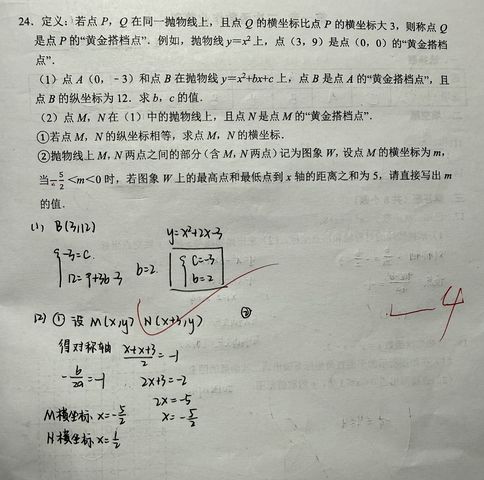 24. 定义：若点 P，Q 在同一抛物线上，且点 Q 的横坐标比点 P 的横坐标大 3，则称点 Q
是点 P 的“黄金搭档点”．例如，抛物线 y=x² 上，点（3，9）是点（0，0）的“黄金搭档
点”．
（1）点 A（0，﹣3）和点 B 在抛物线 y=x²+bx+c 上，点 B 是点 A 的“黄金搭档点”，且
点 B 的纵坐标为 12．求 b，c 的值．
（2）点 M，N 在（1）中的抛物线上，且点 N 是点 M 的“黄金搭档点”．
①若点 M，N 的纵坐标相等，求点 M，N 的横坐标．
②抛物线上 M，N 两点之间的部分（含 M，N 两点）记为图象 W，设点 M 的横坐标为 m，
当﹣5/2<m<0 时，若图象 W 上的最高点和最低点到 x 轴的距离之和为 5，请直接写出 m
的值．
(1) B(3,12) y=x²+2x-3
{-3=c. b=2. {c=-3
12=9+3b-3 b=2
(2) ① 设 M(x,y) N(x+3,y) ②
得对称轴 (x+x+3)/2=-1
-b/2a=-1 2x+3=-2
2x=-5
M横坐标 x=-5/2 x=-5/2
N横坐标 x=1/2
-4